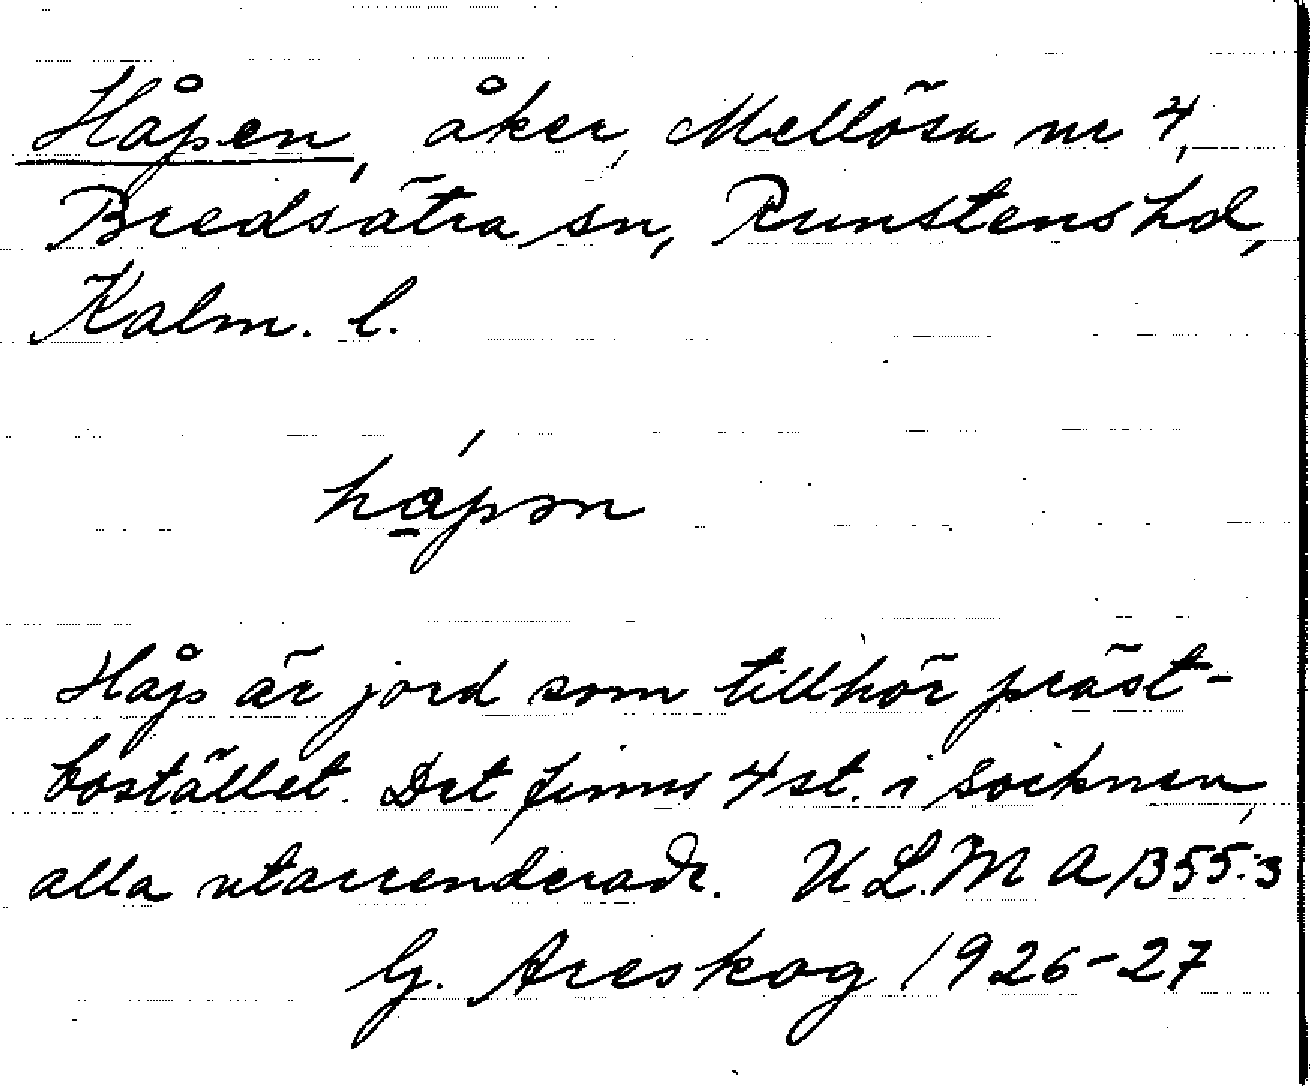 Håpen, åker, Mellösa nr 4,
Bredsätra sn, Runstens hd,
Kalm. l.
håpən
Håp är jord som tillhör präst-
bostället. Det finns 4 st. i socknen,
alla utarrenderade. ULMA 1355:3
G. Areskog 1926-27